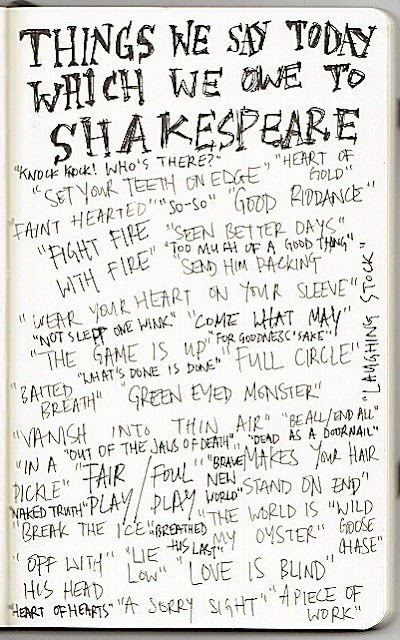 THINGS WE SAY TODAY
WHICH WE OWE TO
SHAKESPEARE
"KNOCK KNOCK! WHO'S THERE?" "HEART OF GOLD"
"SET YOUR TEETH ON EDGE"
FAINT HEARTED" "SO-SO" "GOOD RIDDANCE"
"FIGHT FIRE WITH FIRE" "SEEN BETTER DAYS"
"TOO MUCH OF A GOOD THING"
"SEND HIM PACKING
"WEAR YOUR HEART ON YOUR SLEEVE"
"LAUGHING STOCK"
"NOT SLEPT ONE WINK" "COME WHAT MAY"
"THE GAME IS UP" "FOR GOODNESS' SAKE"
"WHAT'S DONE IS DONE" "FULL CIRCLE"
"BAITED BREATH" "GREEN EYED MONSTER"
"VANISH INTO THIN AIR" "BE ALL/END ALL"
"OUT OF THE JAWS OF DEATH" "DEAD AS A DOORNAIL"
"IN A PICKLE" "FAIR PLAY / FOUL PLAY" "BRAVE NEW WORLD" MAKES YOUR HAIR STAND ON END"
"NAKED TRUTH"
"BREAK THE ICE" "BREATHED HIS LAST" "THE WORLD IS MY OYSTER" "WILD GOOSE CHASE"
"OFF WITH HIS HEAD "LIE LOW" "LOVE IS BLIND"
"HEART OF HEARTS" "A SORRY SIGHT" "A PIECE OF WORK"